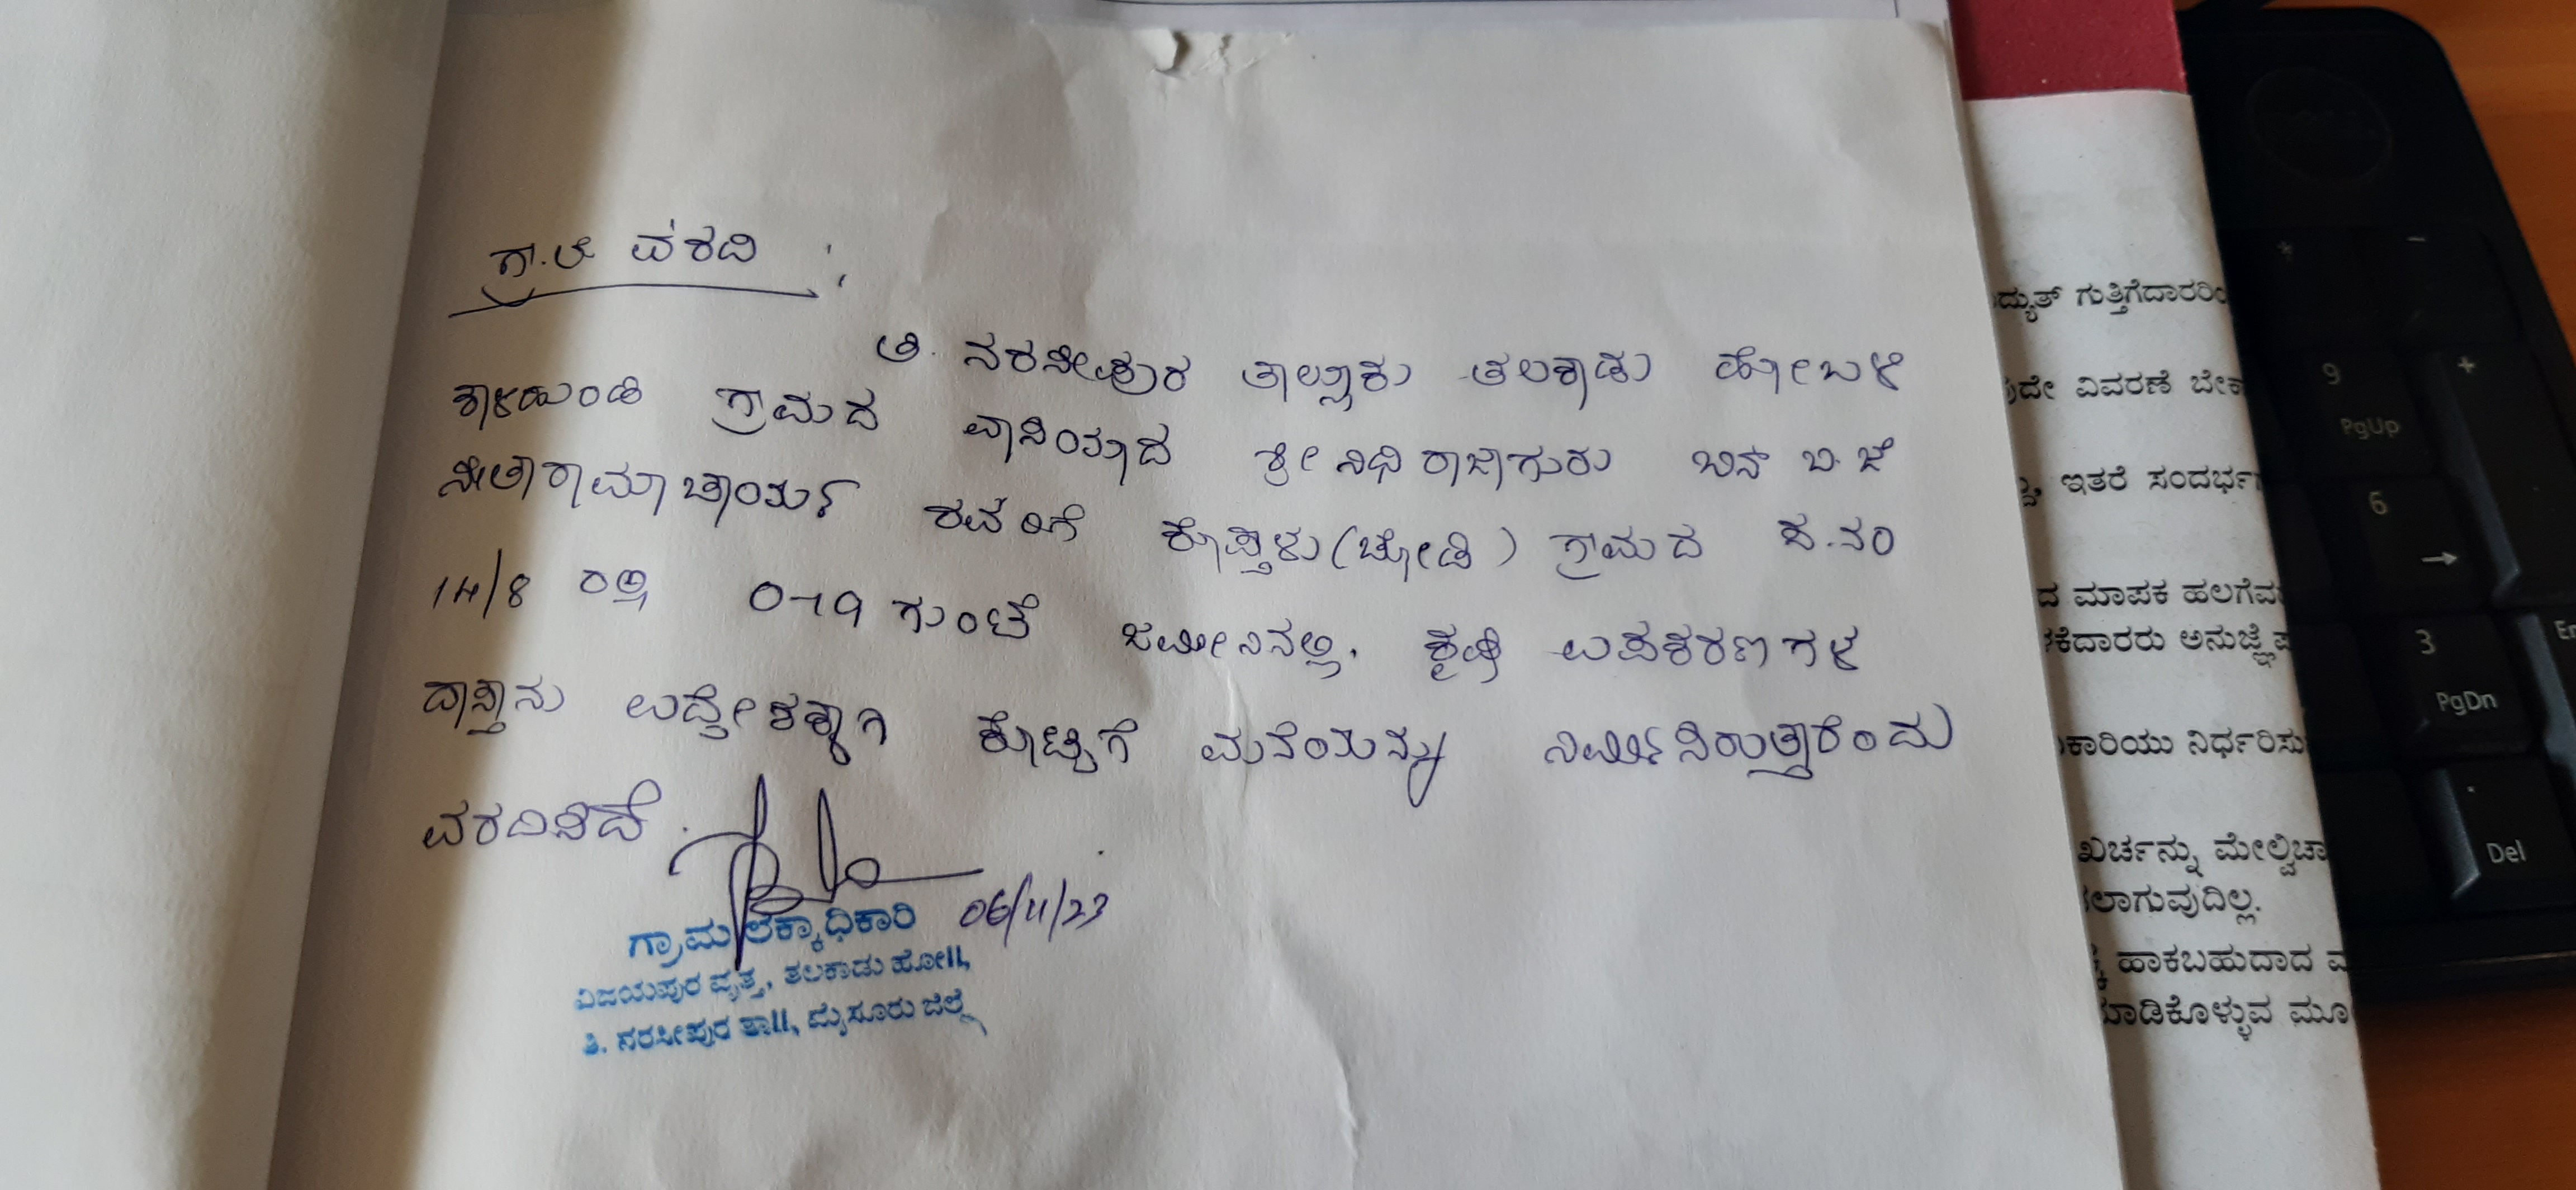 ಗ್ರಾ.ಲೆ ವರದಿ :
ತಿ. ನರಸೀಪುರ ತಾಲ್ಲೂಕು ತಲಕಾಡು ಹೋಬಳಿ
ಕಾಳಿಹುಂಡಿ ಗ್ರಾಮದ ವಾಸಿಯಾದ ಶ್ರೀನಿಧಿರಾಜಾಗುರು ಬಿನ್ ಬಿ.ಜೆ
ಸೀತಾರಾಮಾಚಾರ್ಯ ರವರಿಗೆ (ಜೋಡಿ) ಗ್ರಾಮದ ಸ.ನಂ
14/8 ರಲ್ಲಿ 0-19 ಗುಂಟೆ ಜಮೀನಿನಲ್ಲಿ. ಕೃಷಿ ಉಪಕರಣಗಳ
ದಾಸ್ತಾನು ಉದ್ದೇಶಕ್ಕಾಗಿ ಕೊಟ್ಟಿಗೆ ಮನೆಯನ್ನು ನಿರ್ಮಿಸಿರುತ್ತಾರೆಂದು
ವರದಿಸಿದೆ.
06/11/23
ಗ್ರಾಮ ಲೆಕ್ಕಾಧಿಕಾರಿ
ವಿಜಯಪುರ ವೃತ್ತ, ತಲಕಾಡು ಹೋ||,
ತಿ. ನರಸೀಪುರ ತಾ||, ಮೈಸೂರು ಜಿಲ್ಲೆ
ದ್ಯುತ್ ಗುತ್ತಿಗೆದಾರರಿಂ
ದೇ ವಿವರಣೆ ಬೇಕಾ
ಇತರೆ ಸಂದರ್ಭಗ
ದ ಮಾಪಕ ಹಲಗೆವ
ಕೆದಾರರು ಅನುಜ್ಞೆಪ
ಕಾರಿಯು ನಿರ್ಧರಿಸು
ಖರ್ಚನ್ನು ಮೇಲ್ವಿಚಾ
ಲಾಗುವುದಿಲ್ಲ.
ಹಾಕಬಹುದಾದ ವ
ಮಾಡಿಕೊಳ್ಳುವ ಮೂ
* -
9 PgUp +
6 →
3 PgDn
. Del